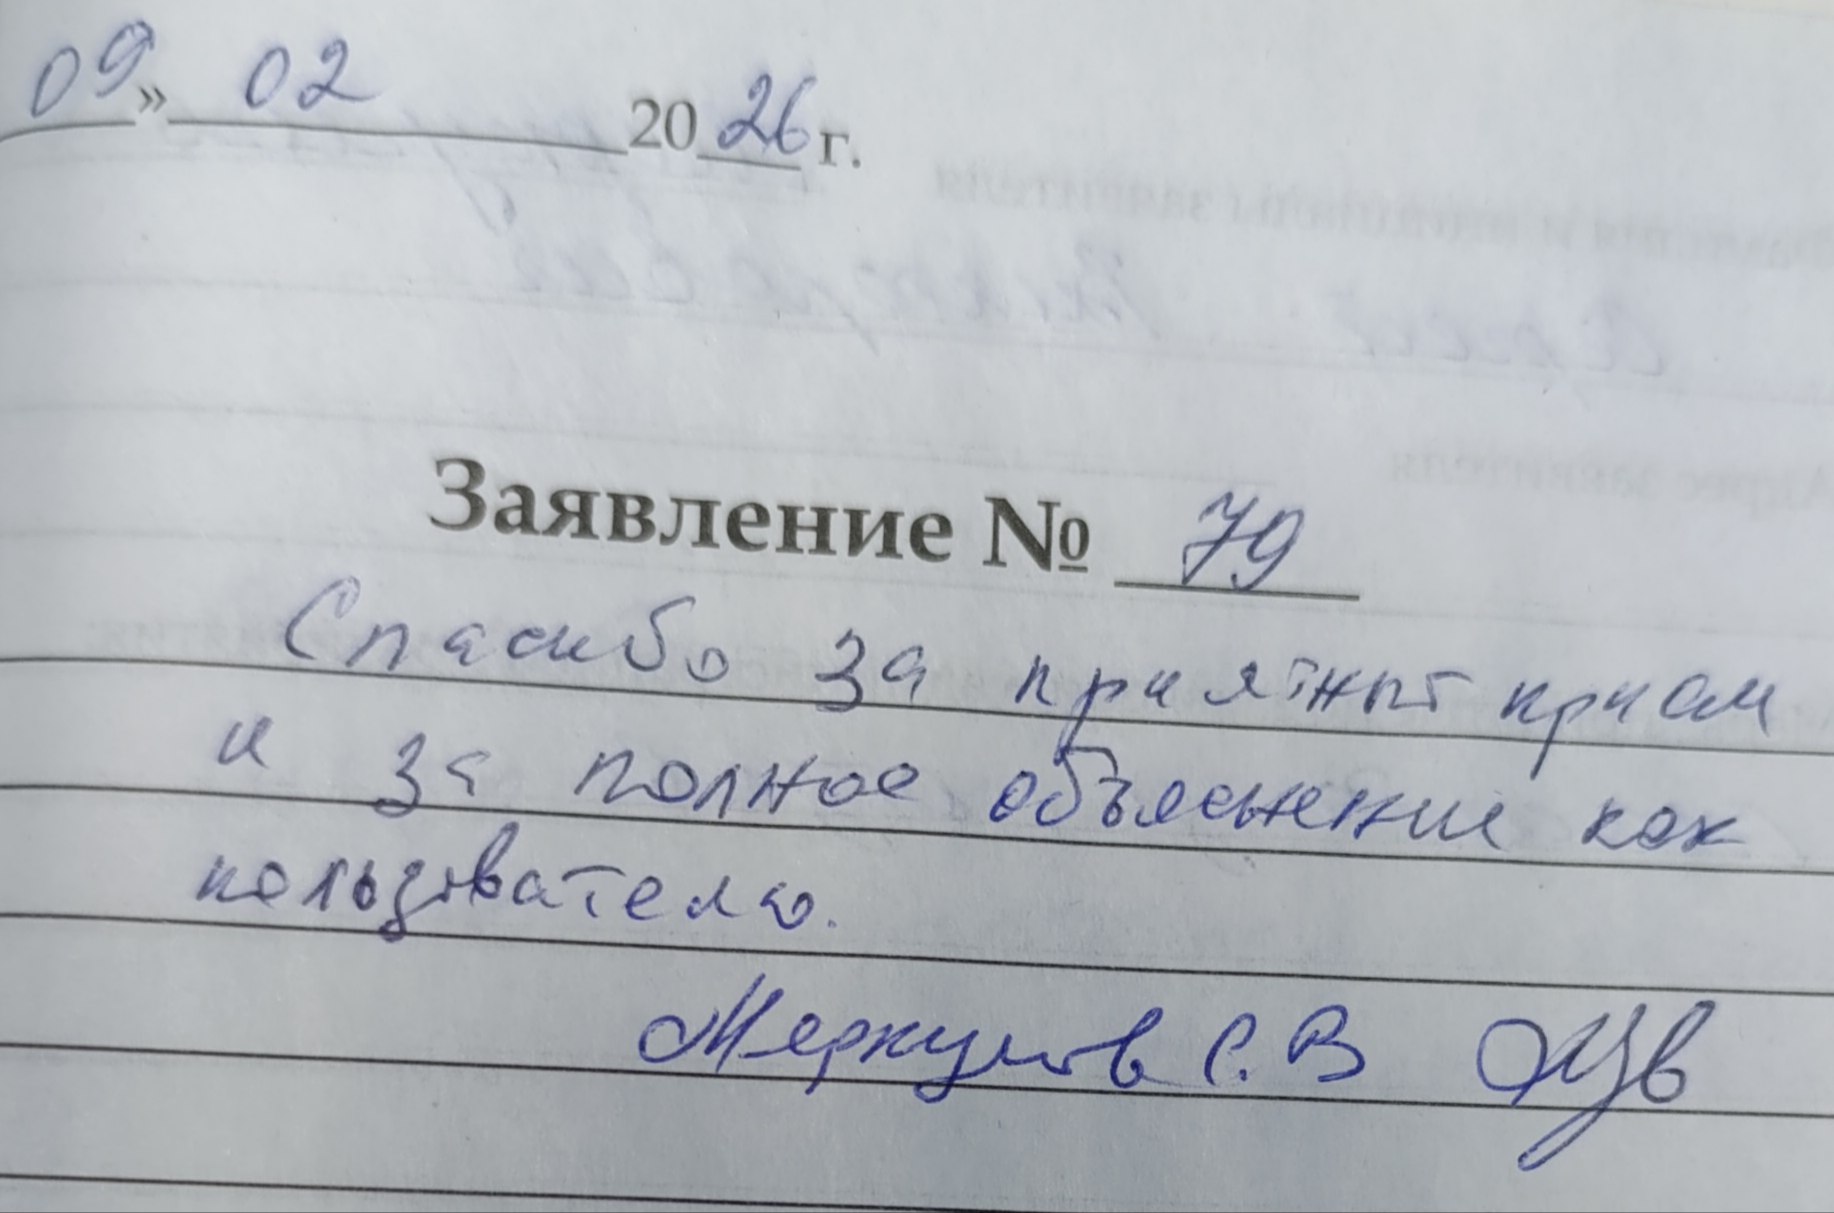 09» 02 2026 г.
Заявление № 79
Спасибо за приятный прием
и за полное объяснение как
пользователю.
Меркулов С.В